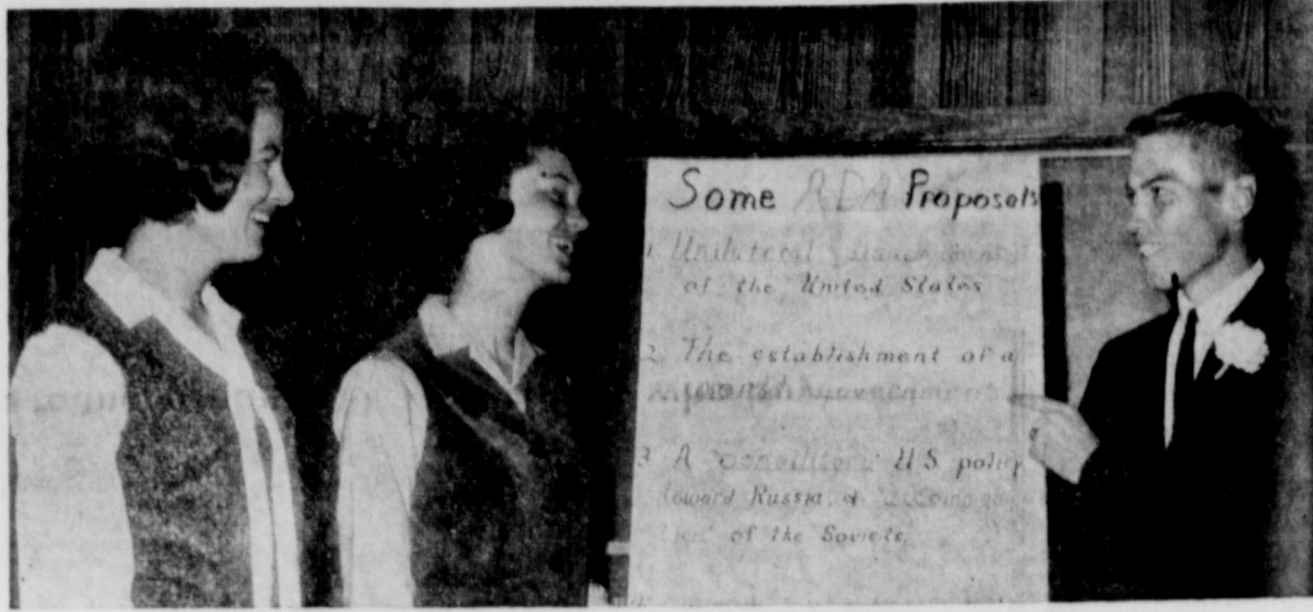 Some ADA Proposals
1 Unilateral disarmament
of the United States
2 The establishment of a
world government
3 A "conciliatory" U S policy
toward Russia, & "accomoda
tion" of the Soviets.